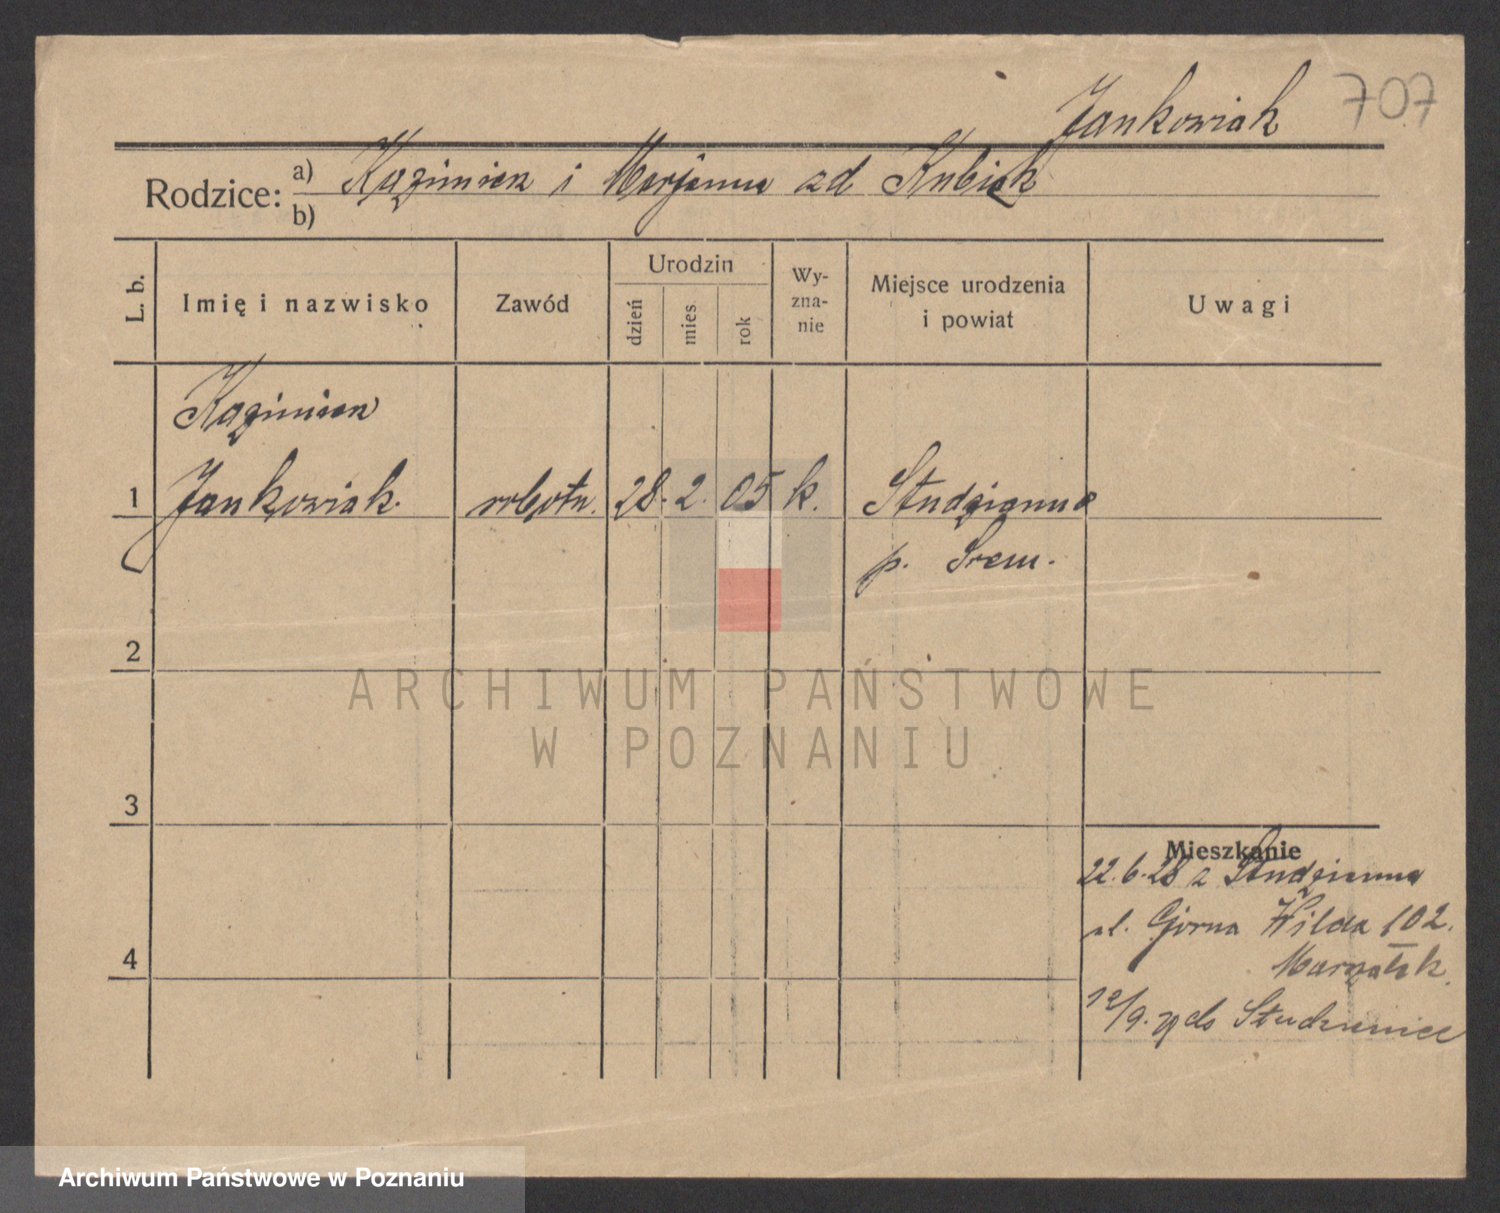 Jankowiak 707
Rodzice: a) Kazimierz i Marjanna zd Kubiak
b)
L. b. Imię i nazwisko Zawód Urodzin dzień mies rok Wy-zna-nie Miejsce urodzenia i powiat Uwagi
Kazimierz
1 Jankowiak. robotn. 28. 2. 05 k. Studzianna
p. Śrem.
2
ARCHIWUM PAŃSTWOWE
W POZNANIU
3
Mieszkanie
22.6.28 z Studzianna
ul. Górna Wilda 102.
4
12/9. do
Archiwum Państwowe w Poznaniu